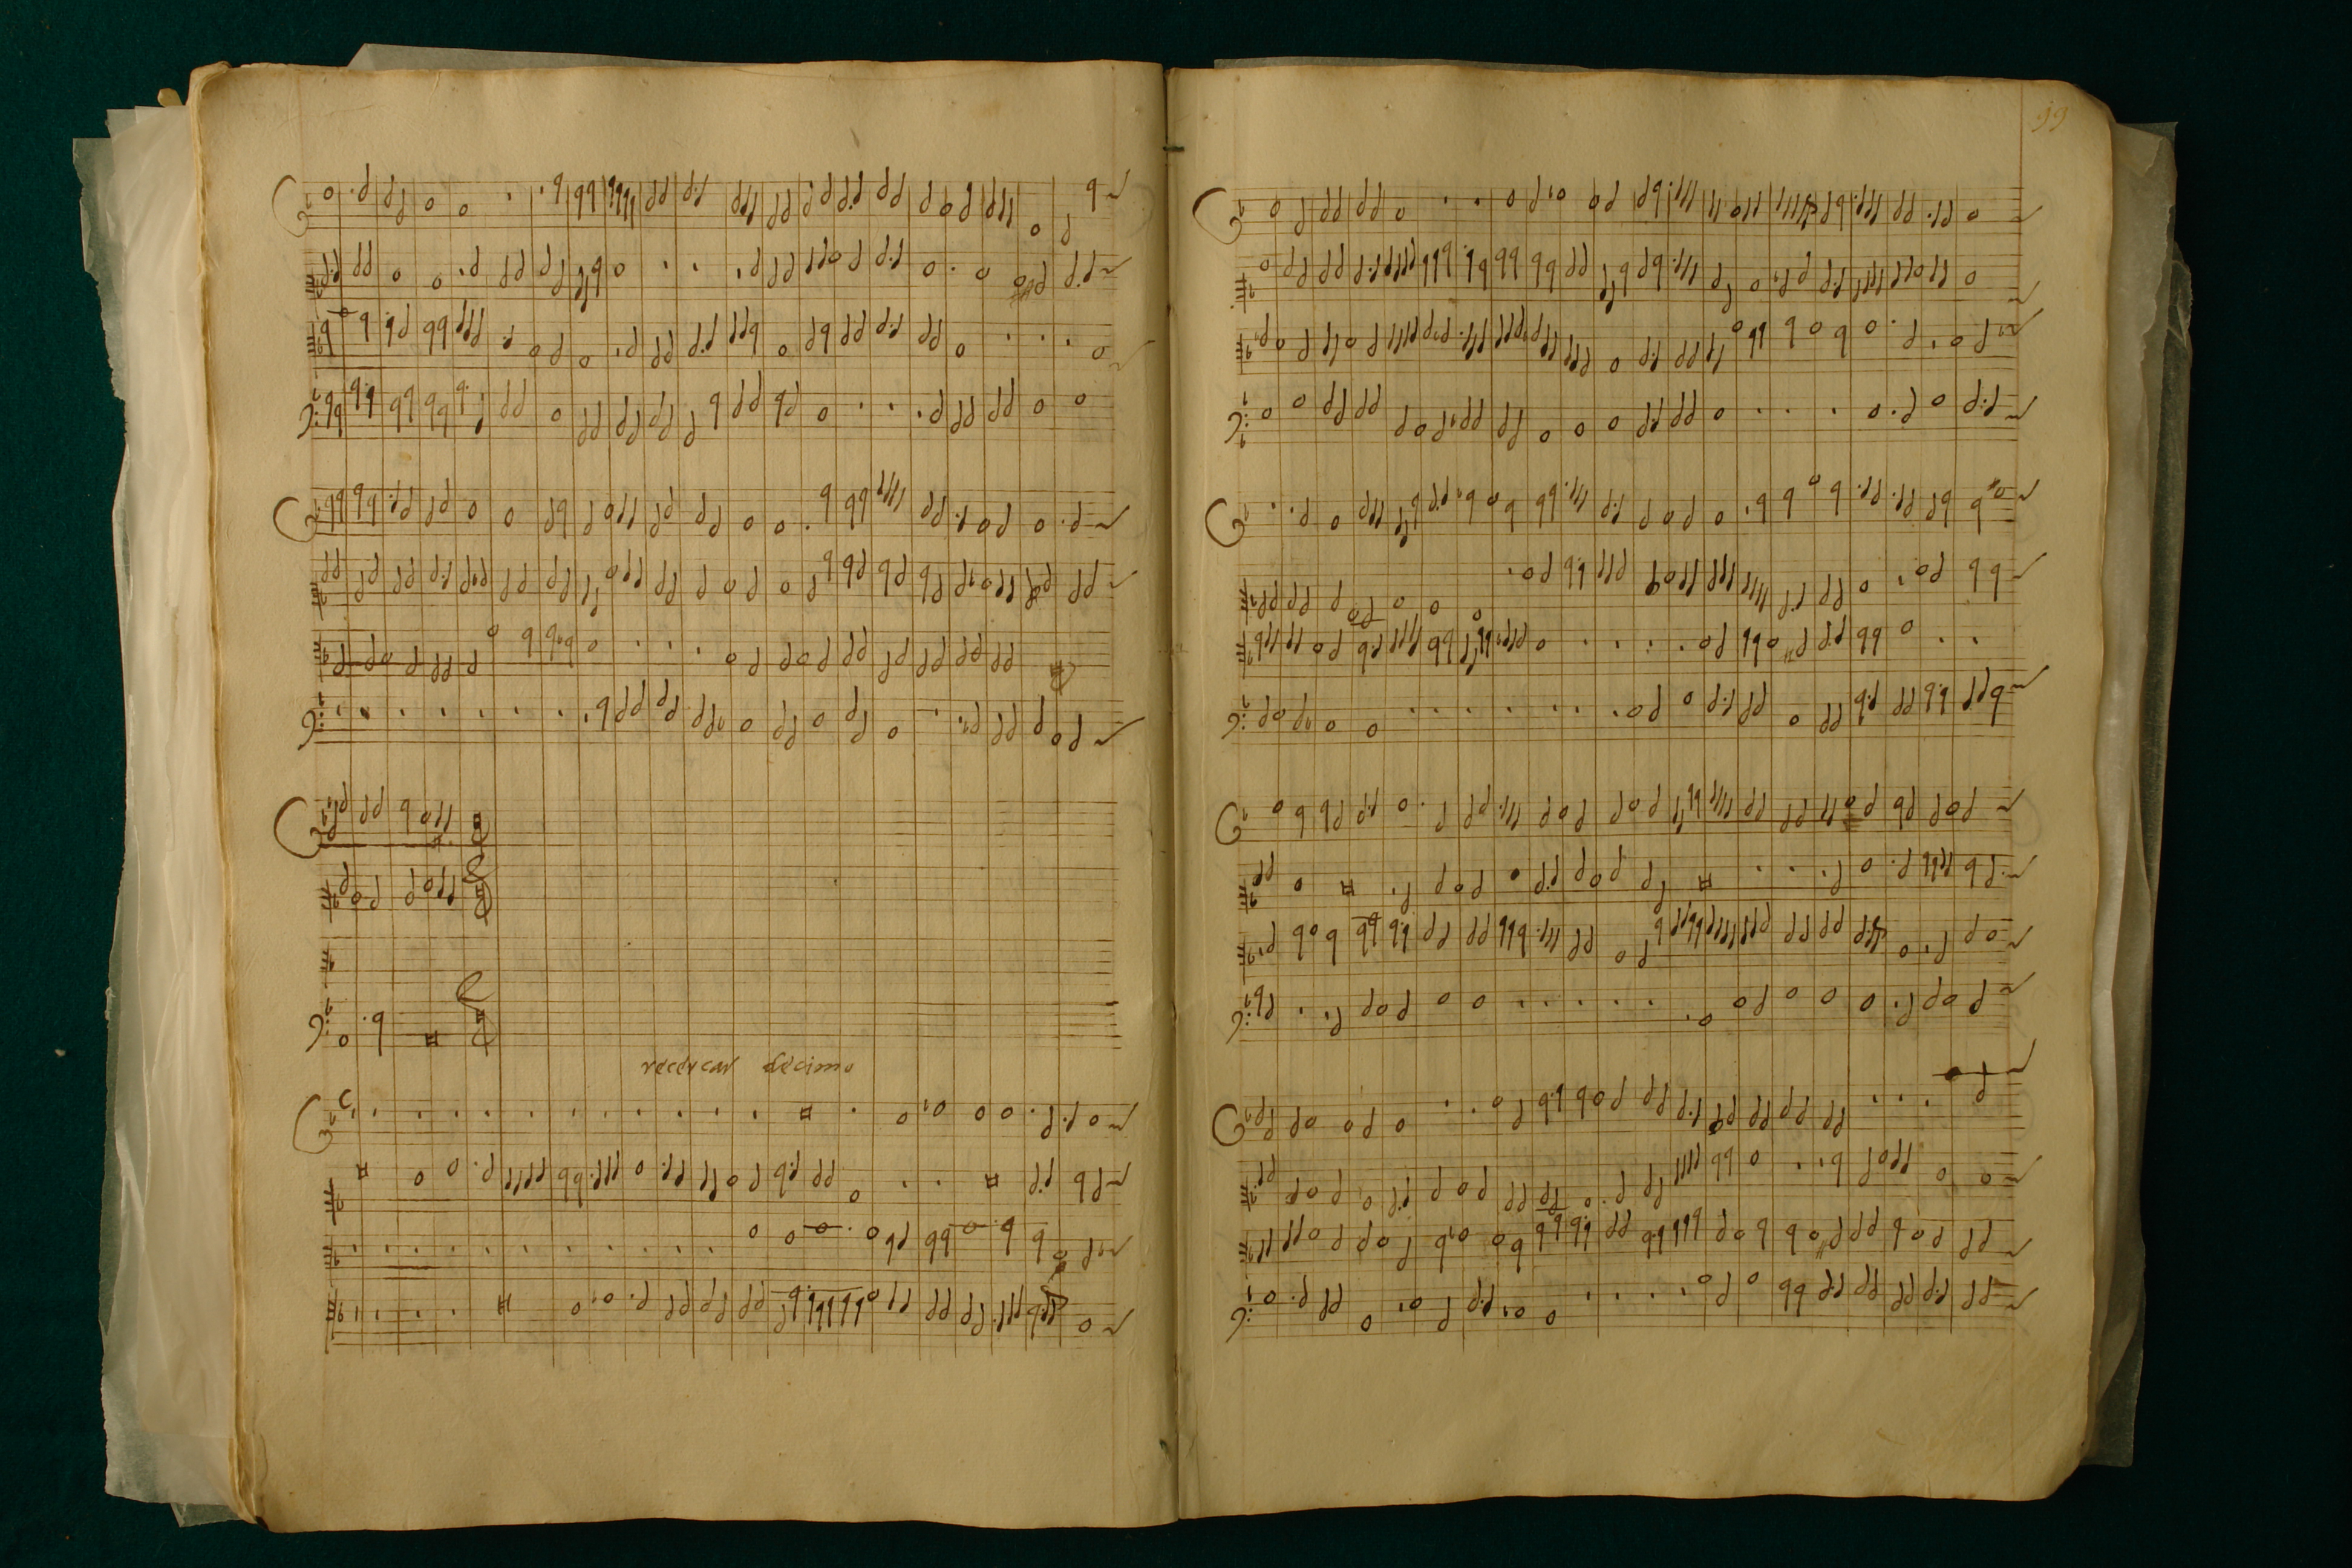 99
recercar decimo